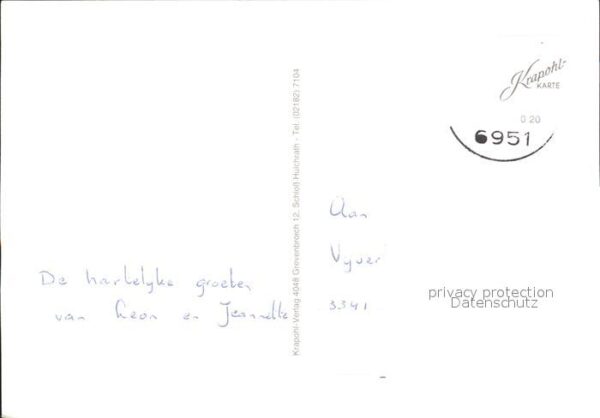 Krapohl-
KARTE
D 20
6951
Krapohl-Verlag 4048 Grevenbroich 12, Schloß Hülchrath - Tel. (02182) 7104
Aan
Vyver
3341
De hartelyke groeten
van Leon en Jeannette
privacy protection
Datenschutz